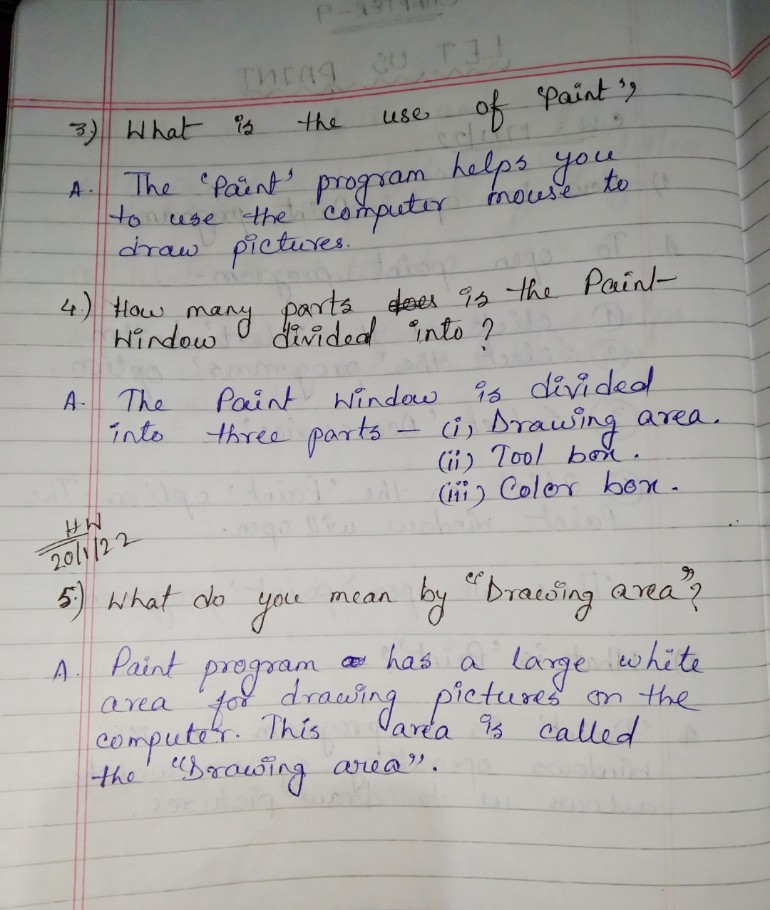 3) What is the use of 'Paint'?
A. The 'Paint' program helps you
to use the computer mouse to
draw pictures.
4.) How many parts does is the Paint-
Window divided into?
A. The Paint Window is divided
into three parts - (i) Drawing area.
(ii) Tool box.
(iii) Color box.
HW
20/1/22
5.) What do you mean by "Drawing area"?
A. Paint program has a large white
area for drawing pictures on the
computer. This area is called
the "Drawing area".